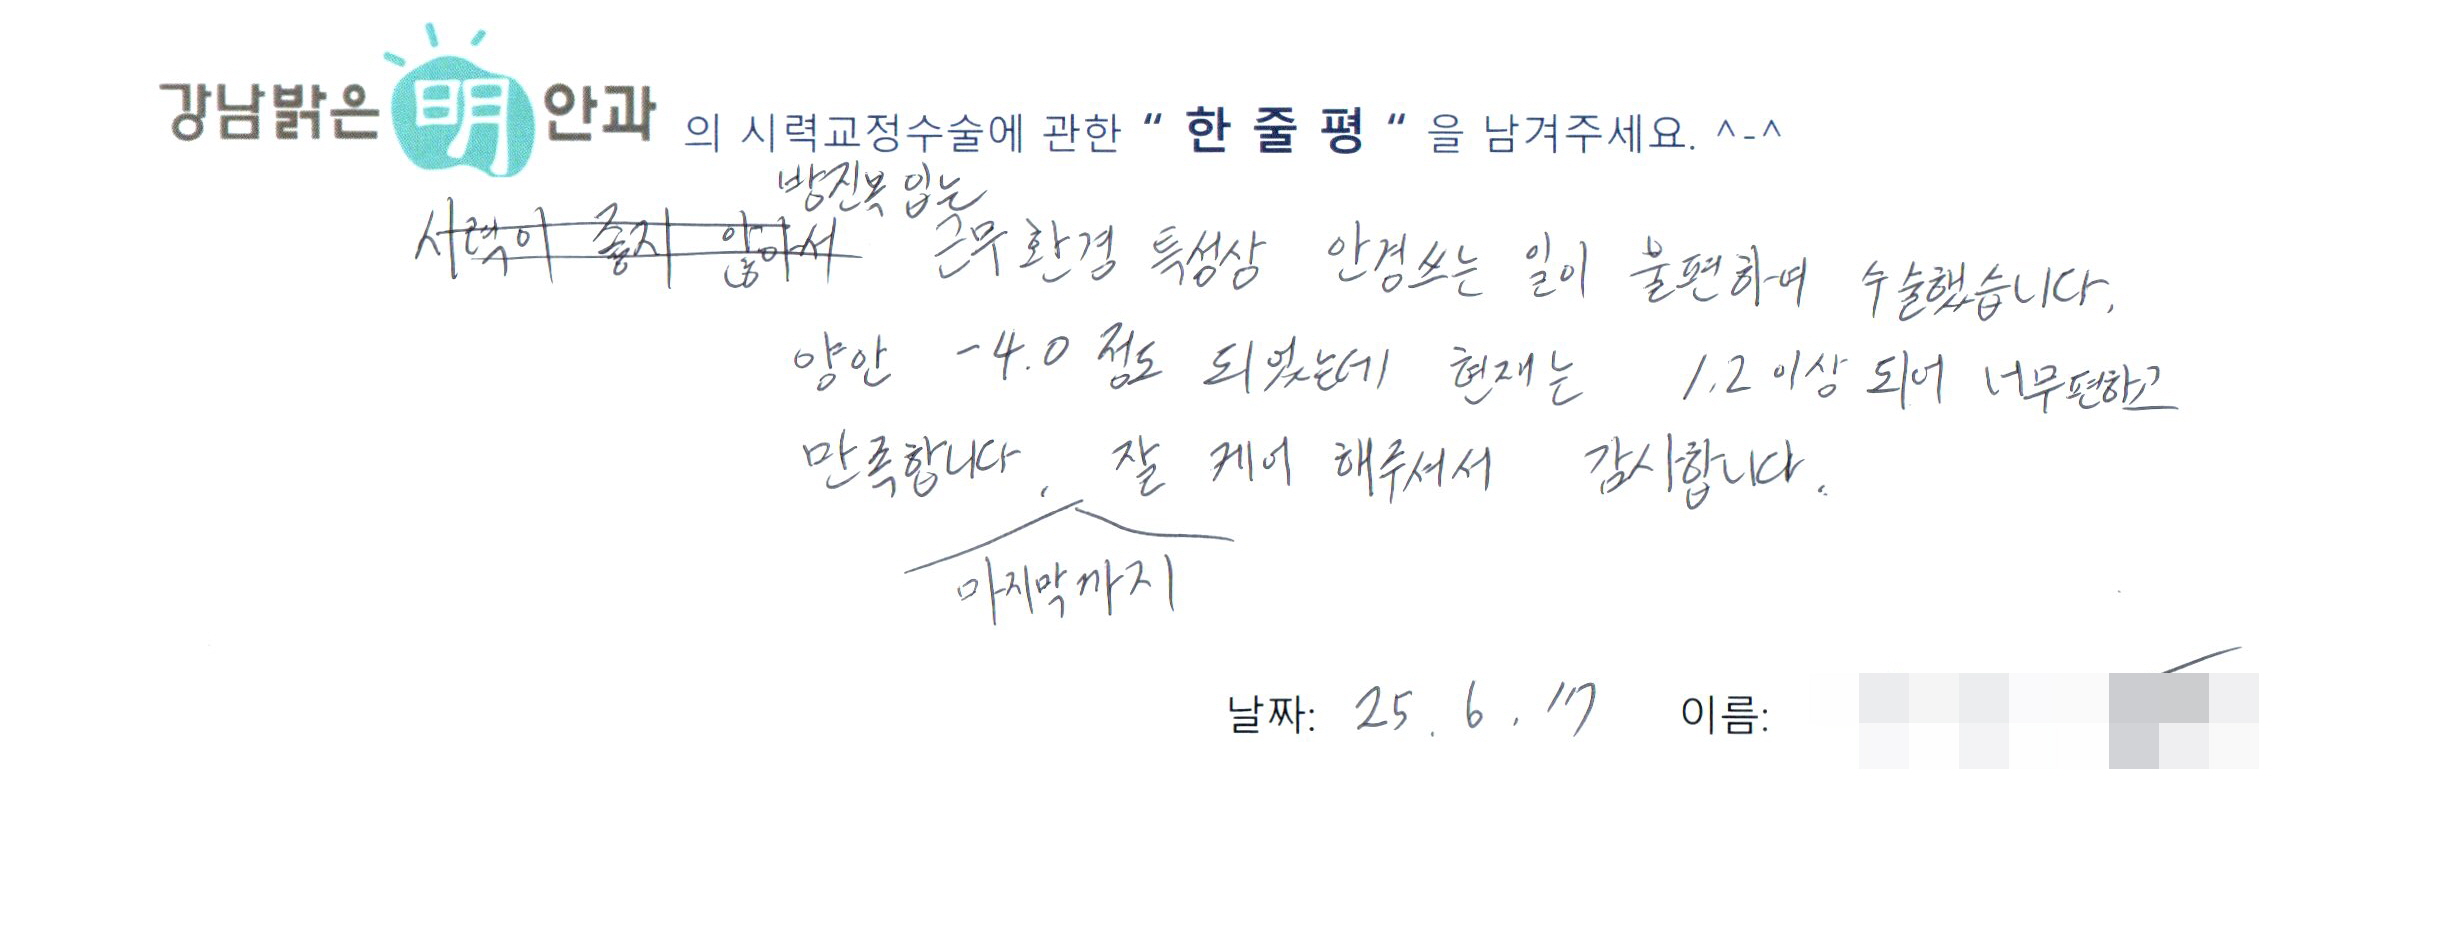 강남밝은 明 안과 의 시력교정수술에 관한 “ 한 줄 평 “ 을 남겨주세요. ^-^
방진복 입는
시력이 좋지 않아서 근무환경 특성상 안경쓰는 일이 불편하여 수술했습니다.
양안 -4.0 정도 되었는데 현재는 1.2 이상 되어 너무편하고
만족합니다. 잘 케어 해주셔서 감사합니다.
마지막까지
날짜: 25. 6. 17 이름: